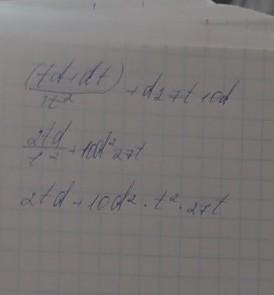 (td+dt)/1t² + d27t10d
2td/t² + 10d²27t
2td+10d²·t²·27t